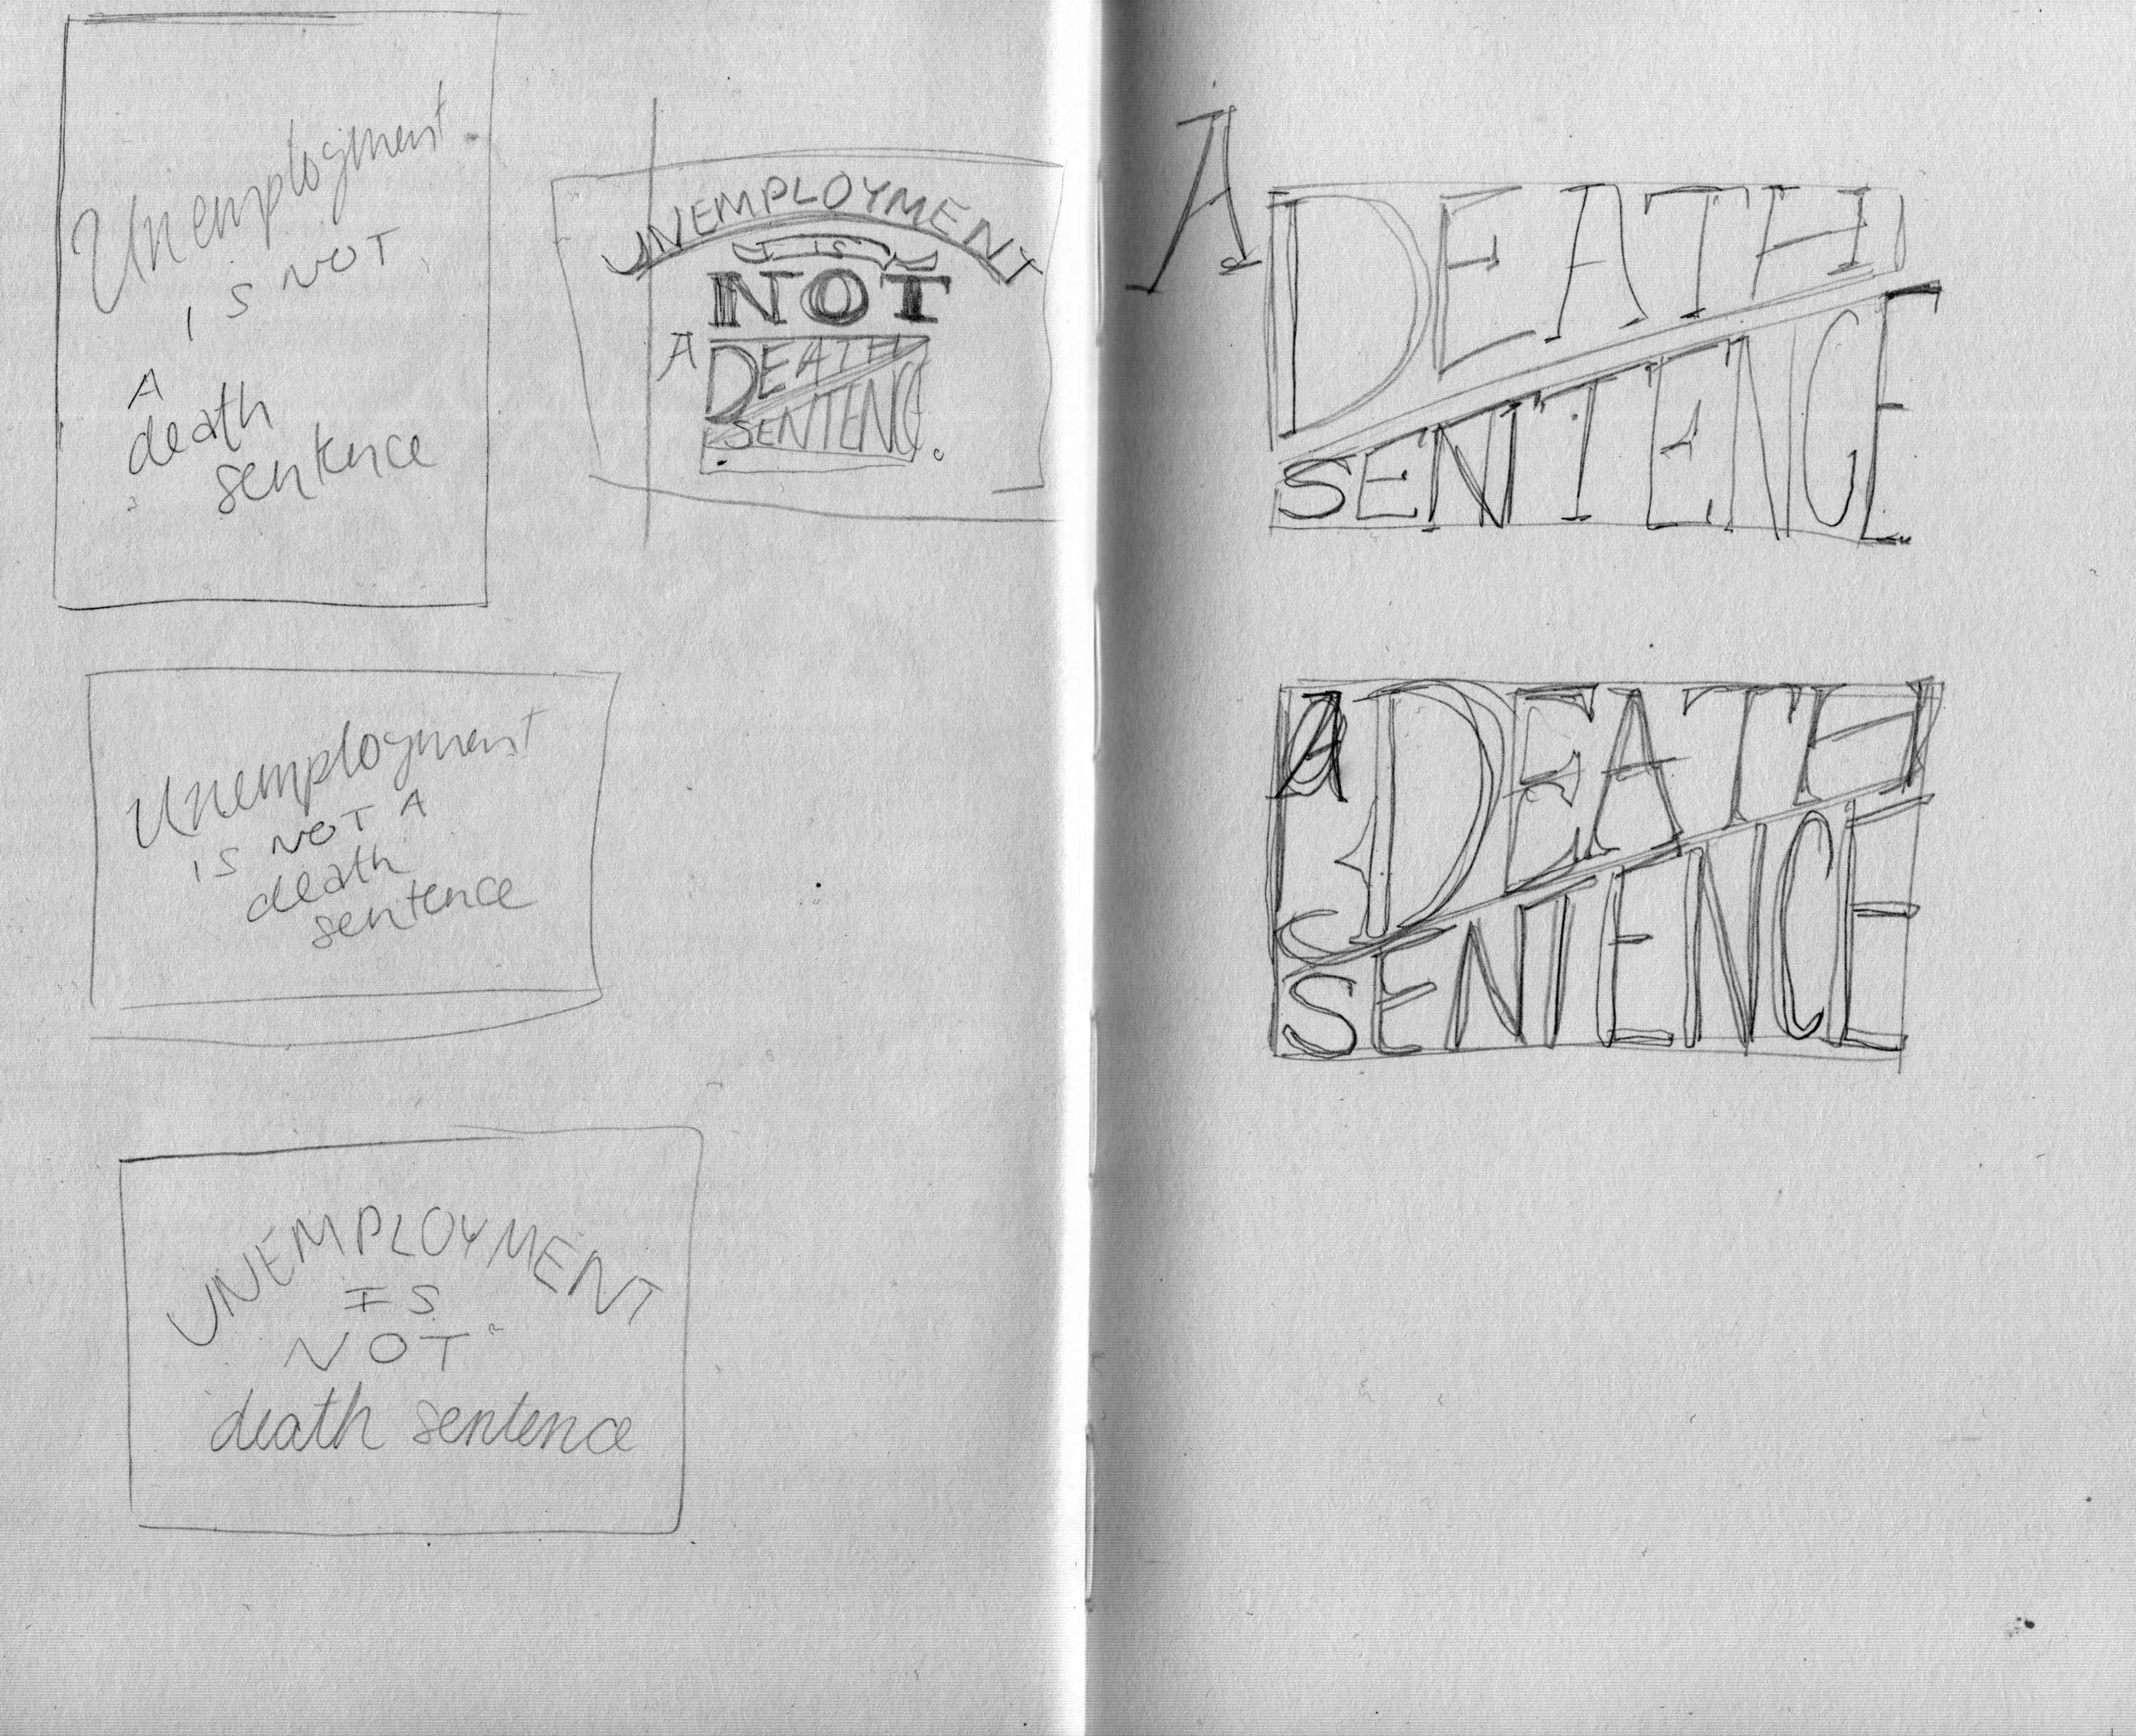 Unemployment
IS NOT
A
death
sentence
UNEMPLOYMENT
IS
NOT
A DEATH
SENTENCE.
Unemployment
IS NOT A
death
sentence
UNEMPLOYMENT
IS
NOT
death sentence
A DEATH
SENTENCE
A DEATH
SENTENCE